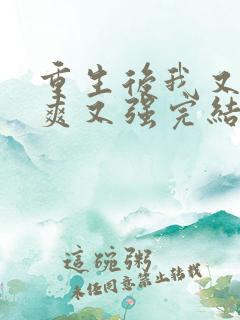 重生後我又
爽又強完結
這碗粥
未经同意禁止转载